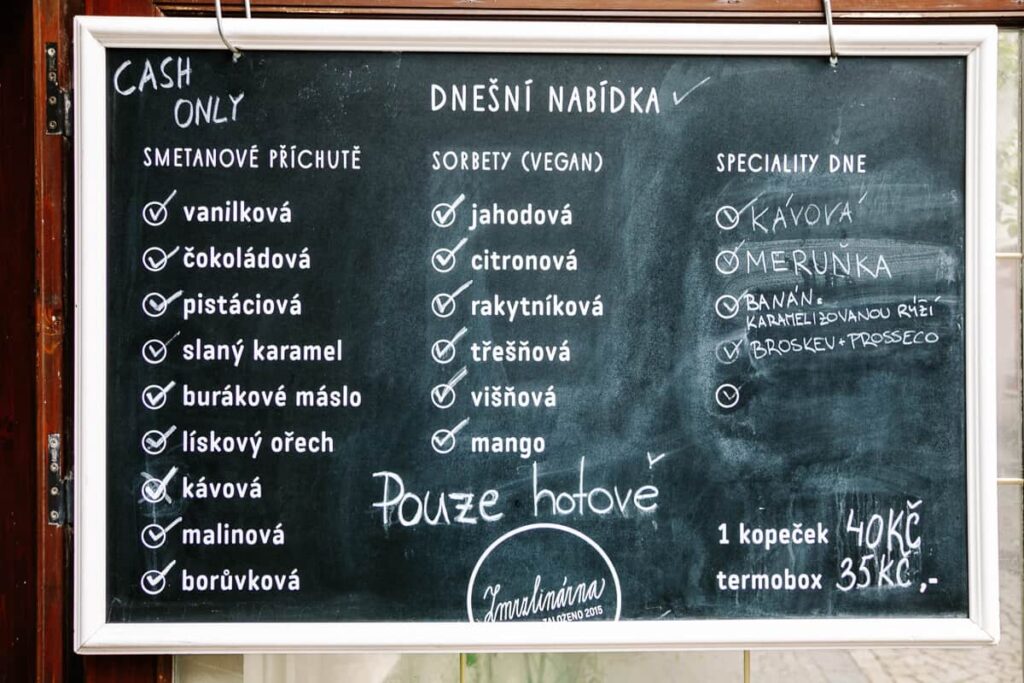 CASH
ONLY
DNEŠNÍ NABÍDKA
SMETANOVÉ PŘÍCHUTĚ
vanilková
čokoládová
pistáciová
slaný karamel
burákové máslo
lískový ořech
kávová
malinová
borůvková
SORBETY (VEGAN)
jahodová
citronová
rakytníková
třešňová
višňová
mango
SPECIALITY DNE
KÁVOVÁ
MERUŇKA
BANÁN s
KARAMELIZOVANOU RÝŽÍ
BROSKEV + PROSSECO
Pouze hotově
1 kopeček 40 KČ
termobox 35 KČ,-
Zmrzlinárna
ZALOŽENO 2015